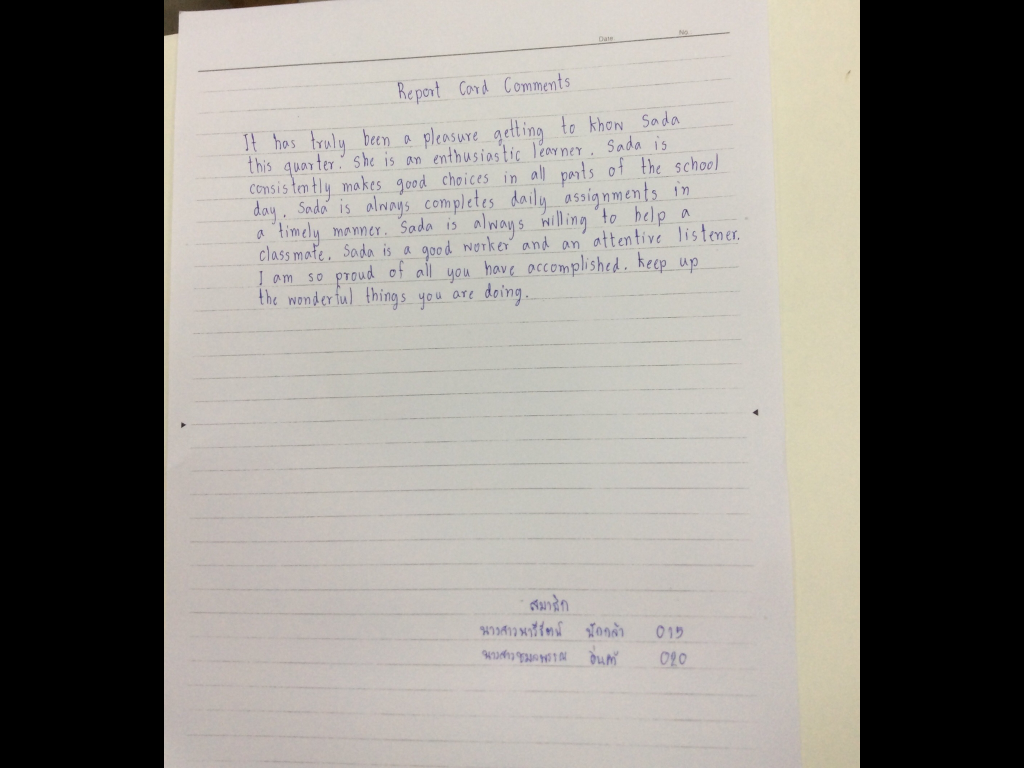 Date No.
Report Card Comments
It has truly been a pleasure getting to know Sada
this quarter. She is an enthusiastic learner. Sada is
consistently makes good choices in all parts of the school
day. Sada is always completes daily assignments in
a timely manner. Sada is always willing to help a
classmate. Sada is a good worker and an attentive listener.
I am so proud of all you have accomplished. Keep up
the wonderful things you are doing.
สมาชิก
นางสาวนารีรัตน์ 015
นางสาว 020